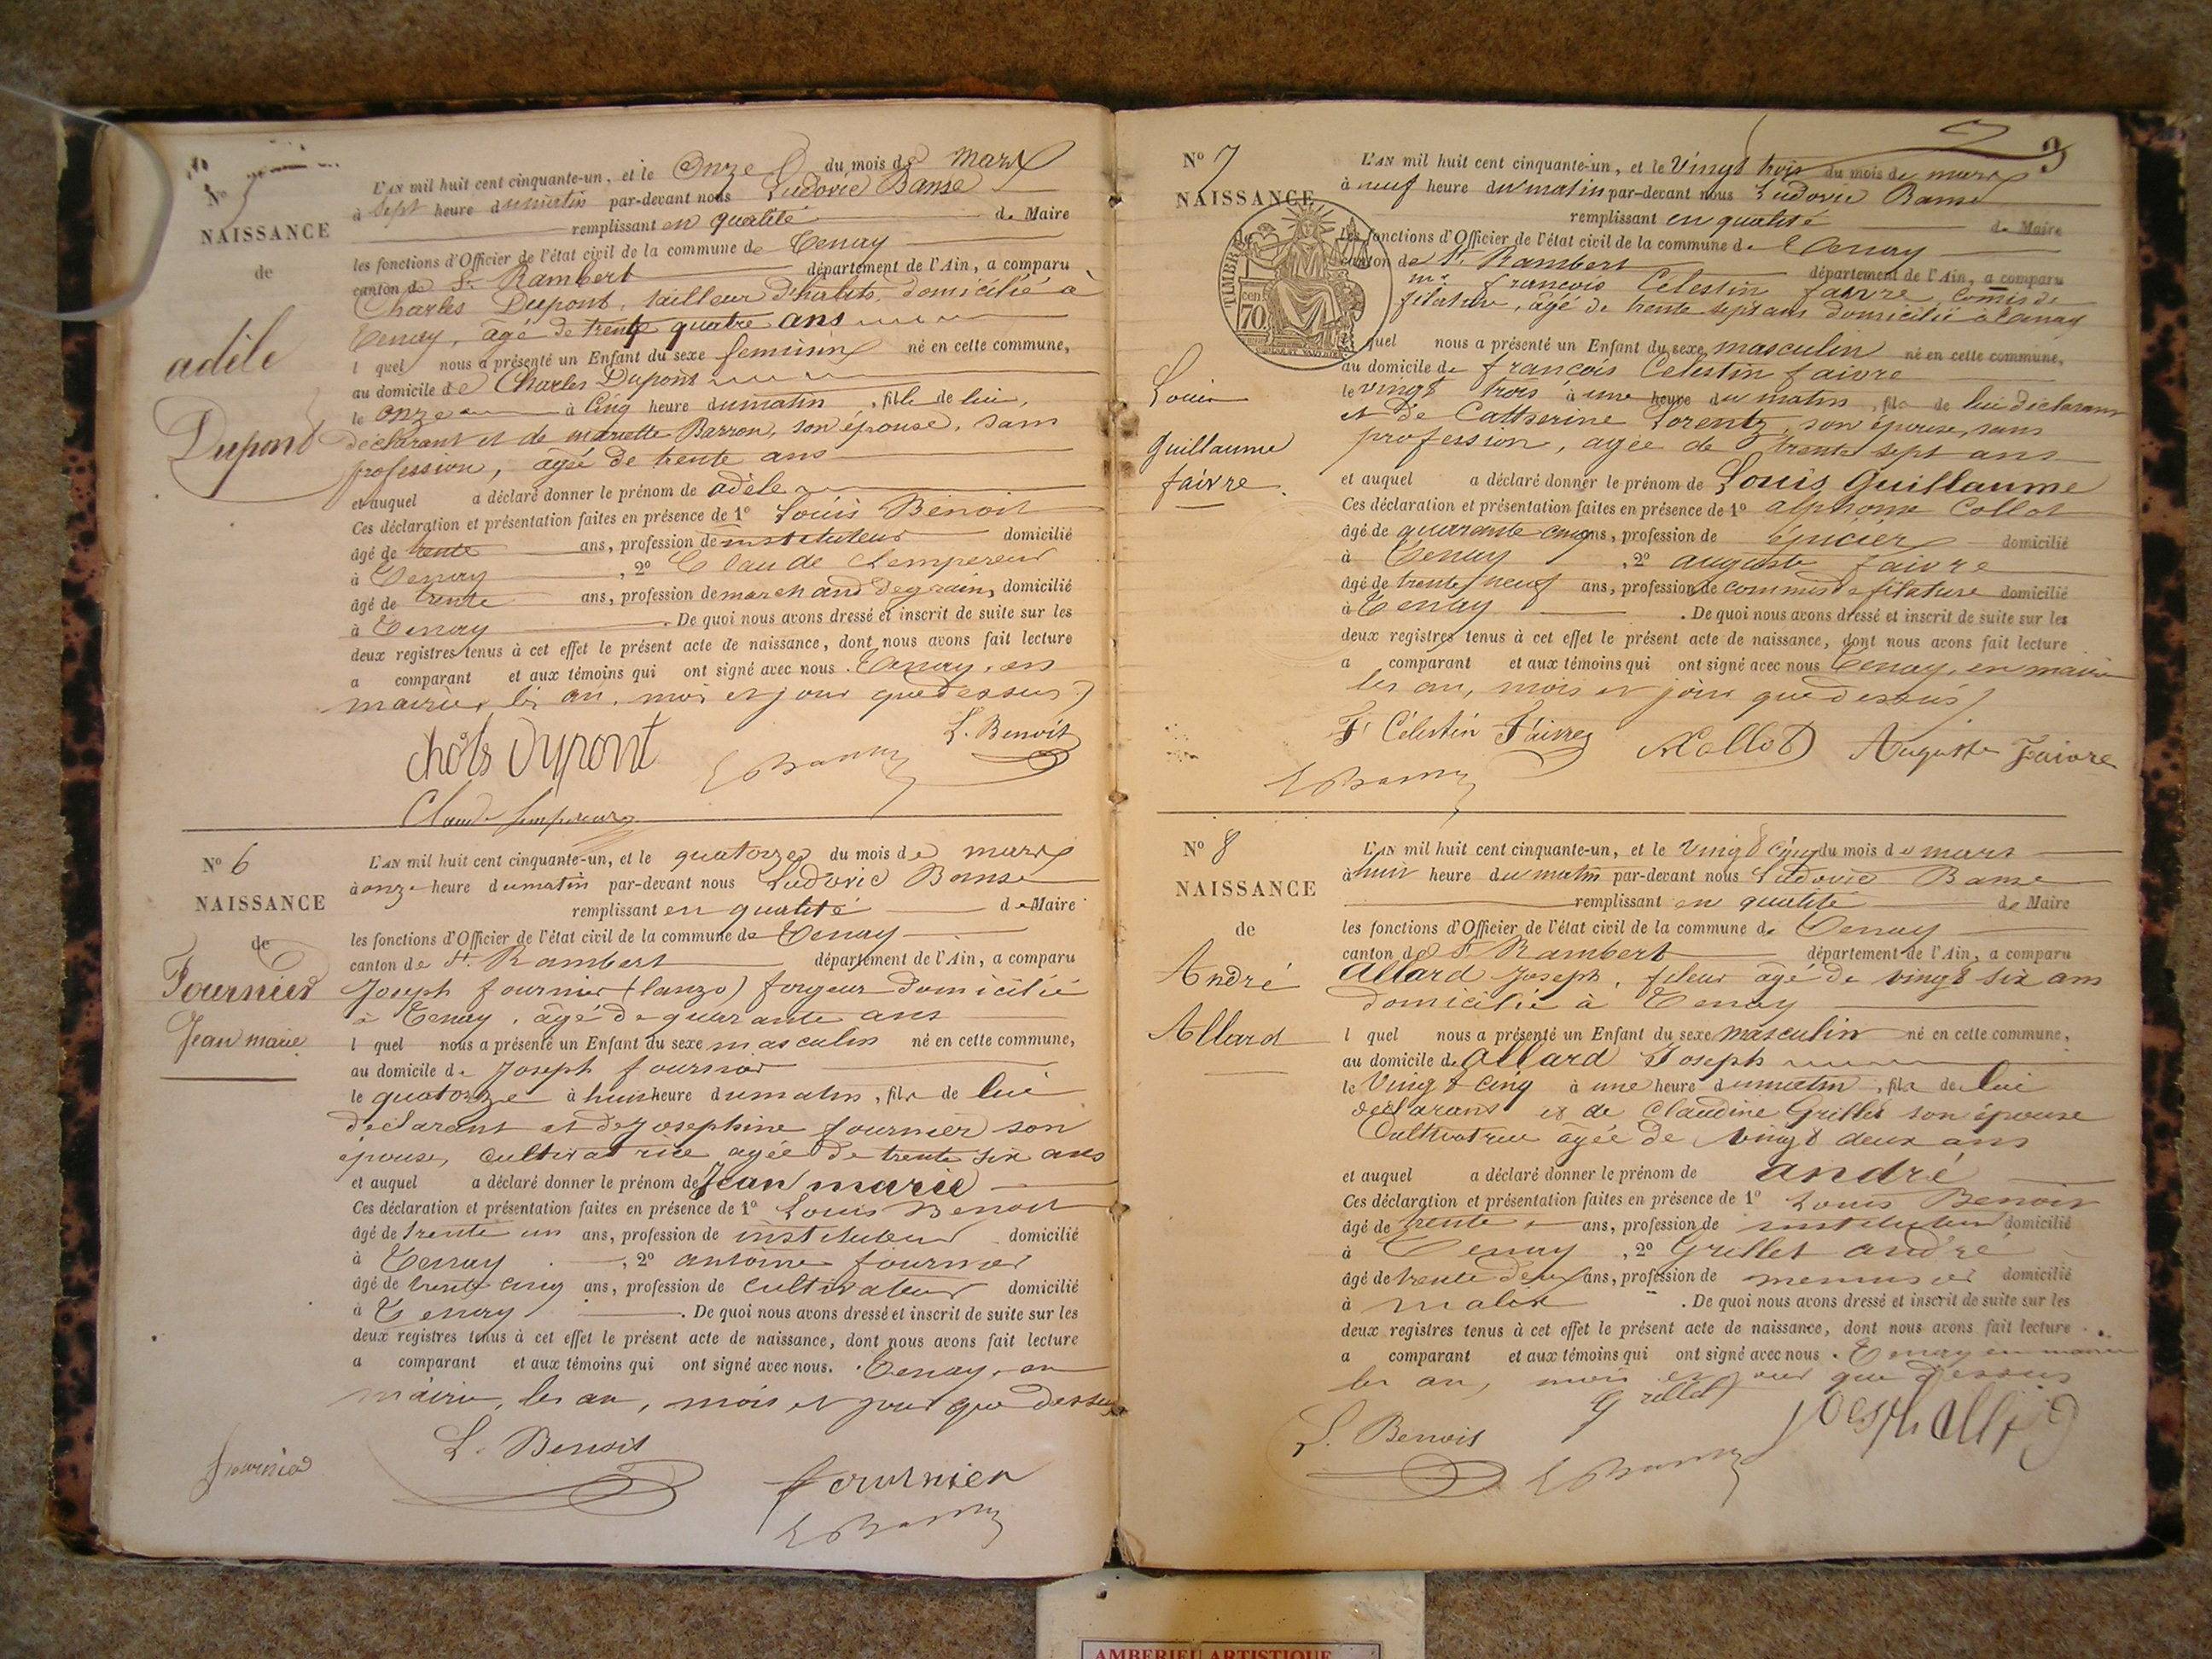 N° 5
NAISSANCE
de
adèle
Dupont
L'AN mil huit cent cinquante-un, et le Onze du mois de Mars
à Sept heure du matin par-devant nous Ludovic Banse
remplissant en qualité de Maire
les fonctions d'Officier de l'état civil de la commune de Tenay
canton de St Rambert département de l'Ain, a comparu
Charles Dupont, tailleur d'habits, domicilié à
Tenay, âgé de trente quatre ans
l quel nous a présenté un Enfant du sexe feminin né en cette commune,
au domicile de Charles Dupont
le onze à Cinq heure du matin, fille de lui,
déclarant et de mariette Barron, son épouse, sans
profession, agée de trente ans
et auquel a déclaré donner le prénom de adèle
Ces déclaration et présentation faites en présence de 1° Louis Benoit
âgé de trente ans, profession de instituteur domicilié
à Tenay, 2° Claude Lempereur
âgé de trente ans, profession de marchand de grains, domicilié
à Tenay. De quoi nous avons dressé et inscrit de suite sur les
deux registres tenus à cet effet le présent acte de naissance, dont nous avons fait lecture
a comparant et aux témoins qui ont signé avec nous. Tenay, en
mairie, les an, mois et jour que dessus
L. Benoit
chôls Dupont
L Banse
Claude Lempereur
N° 6
NAISSANCE
de
Fournier
Jean marie
L'AN mil huit cent cinquante-un, et le quatorze du mois de mars
à onze heure du matin par-devant nous Ludovic Banse
remplissant en qualité de Maire
les fonctions d'Officier de l'état civil de la commune de Tenay
canton de St. Rambert département de l'Ain, a comparu
Joseph fournier (lanzo) forgeur domicilié
à Tenay, âgé de quarante ans
l quel nous a présenté un Enfant du sexe masculin né en cette commune,
au domicile de Joseph fournier
le quatorze à huit heure du matin, fils de lui
déclarant et de Josephine fournier son
épouse, cultivatrice agée de trente six ans
et auquel a déclaré donner le prénom de Jean marie
Ces déclaration et présentation faites en présence de 1° Louis Benoit
âgé de trente un ans, profession de instituteur domicilié
à Tenay, 2° antoine fournier
âgé de trente cinq ans, profession de cultivateur domicilié
à Tenay. De quoi nous avons dressé et inscrit de suite sur les
deux registres tenus à cet effet le présent acte de naissance, dont nous avons fait lecture
a comparant et aux témoins qui ont signé avec nous. Tenay, en
mairie, les an, mois et jour que dessus
fournier
L. Benoit
fournier
L Banse
3
N° 7
NAISSANCE
TIMBRE
70
cen.
Louis
Guillaume
faivre
L'AN mil huit cent cinquante-un, et le Vingt trois du mois de mars
à neuf heure du matin par-devant nous Ludovic Banse
remplissant en qualité de Maire
les fonctions d'Officier de l'état civil de la commune de Tenay
canton de St. Rambert département de l'Ain, a comparu
mr. françois Célestin faivre, comis de
filature, âgé de trente sept ans domicilié à Tenay
l quel nous a présenté un Enfant du sexe masculin né en cette commune,
au domicile de françois Célestin faivre
le vingt trois à une heure du matin, fils de lui déclarant
et de Catherine Lorentz, son épouse, sans
profession, agée de trente sept ans
et auquel a déclaré donner le prénom de Louis Guillaume
Ces déclaration et présentation faites en présence de 1° alphonse Collot
âgé de quarante cinq ans, profession de épicier domicilié
à Tenay, 2° auguste faivre
âgé de trente neuf ans, profession de commis de filature domicilié
à Tenay. De quoi nous avons dressé et inscrit de suite sur les
deux registres tenus à cet effet le présent acte de naissance, dont nous avons fait lecture
a comparant et aux témoins qui ont signé avec nous Tenay, en mairie
les an, mois et jour que dessus
F. Célestin Faivre
ACollot
Auguste Faivre
L Banse
N° 8
NAISSANCE
de
André
Allard
L'AN mil huit cent cinquante-un, et le Vingt cinq du mois de mars
à huit heure du matin par-devant nous Ludovic Banse
remplissant en qualité de Maire
les fonctions d'Officier de l'état civil de la commune de Tenay
canton de St Rambert département de l'Ain, a comparu
Allard Joseph, fileur âgé de vingt six ans
domicilié à Tenay
l quel nous a présenté un Enfant du sexe masculin né en cette commune,
au domicile de Allard Joseph
le Vingt cinq à une heure du matin, fils de lui
déclarant et de Claudine Grillet son épouse
Cultivatrice agée de vingt deux ans
et auquel a déclaré donner le prénom de andré
Ces déclaration et présentation faites en présence de 1° Louis Benoit
âgé de trente ans, profession de instituteur domicilié
à Tenay, 2° Grillet andré
âgé de trente deux ans, profession de menuisier domicilié
à malix. De quoi nous avons dressé et inscrit de suite sur les
deux registres tenus à cet effet le présent acte de naissance, dont nous avons fait lecture
a comparant et aux témoins qui ont signé avec nous. Tenay en mairie
les an, mois et jour que dessus
Grillet
L. Benoit
L Banse
AMBERIEU ARTISTIQUE